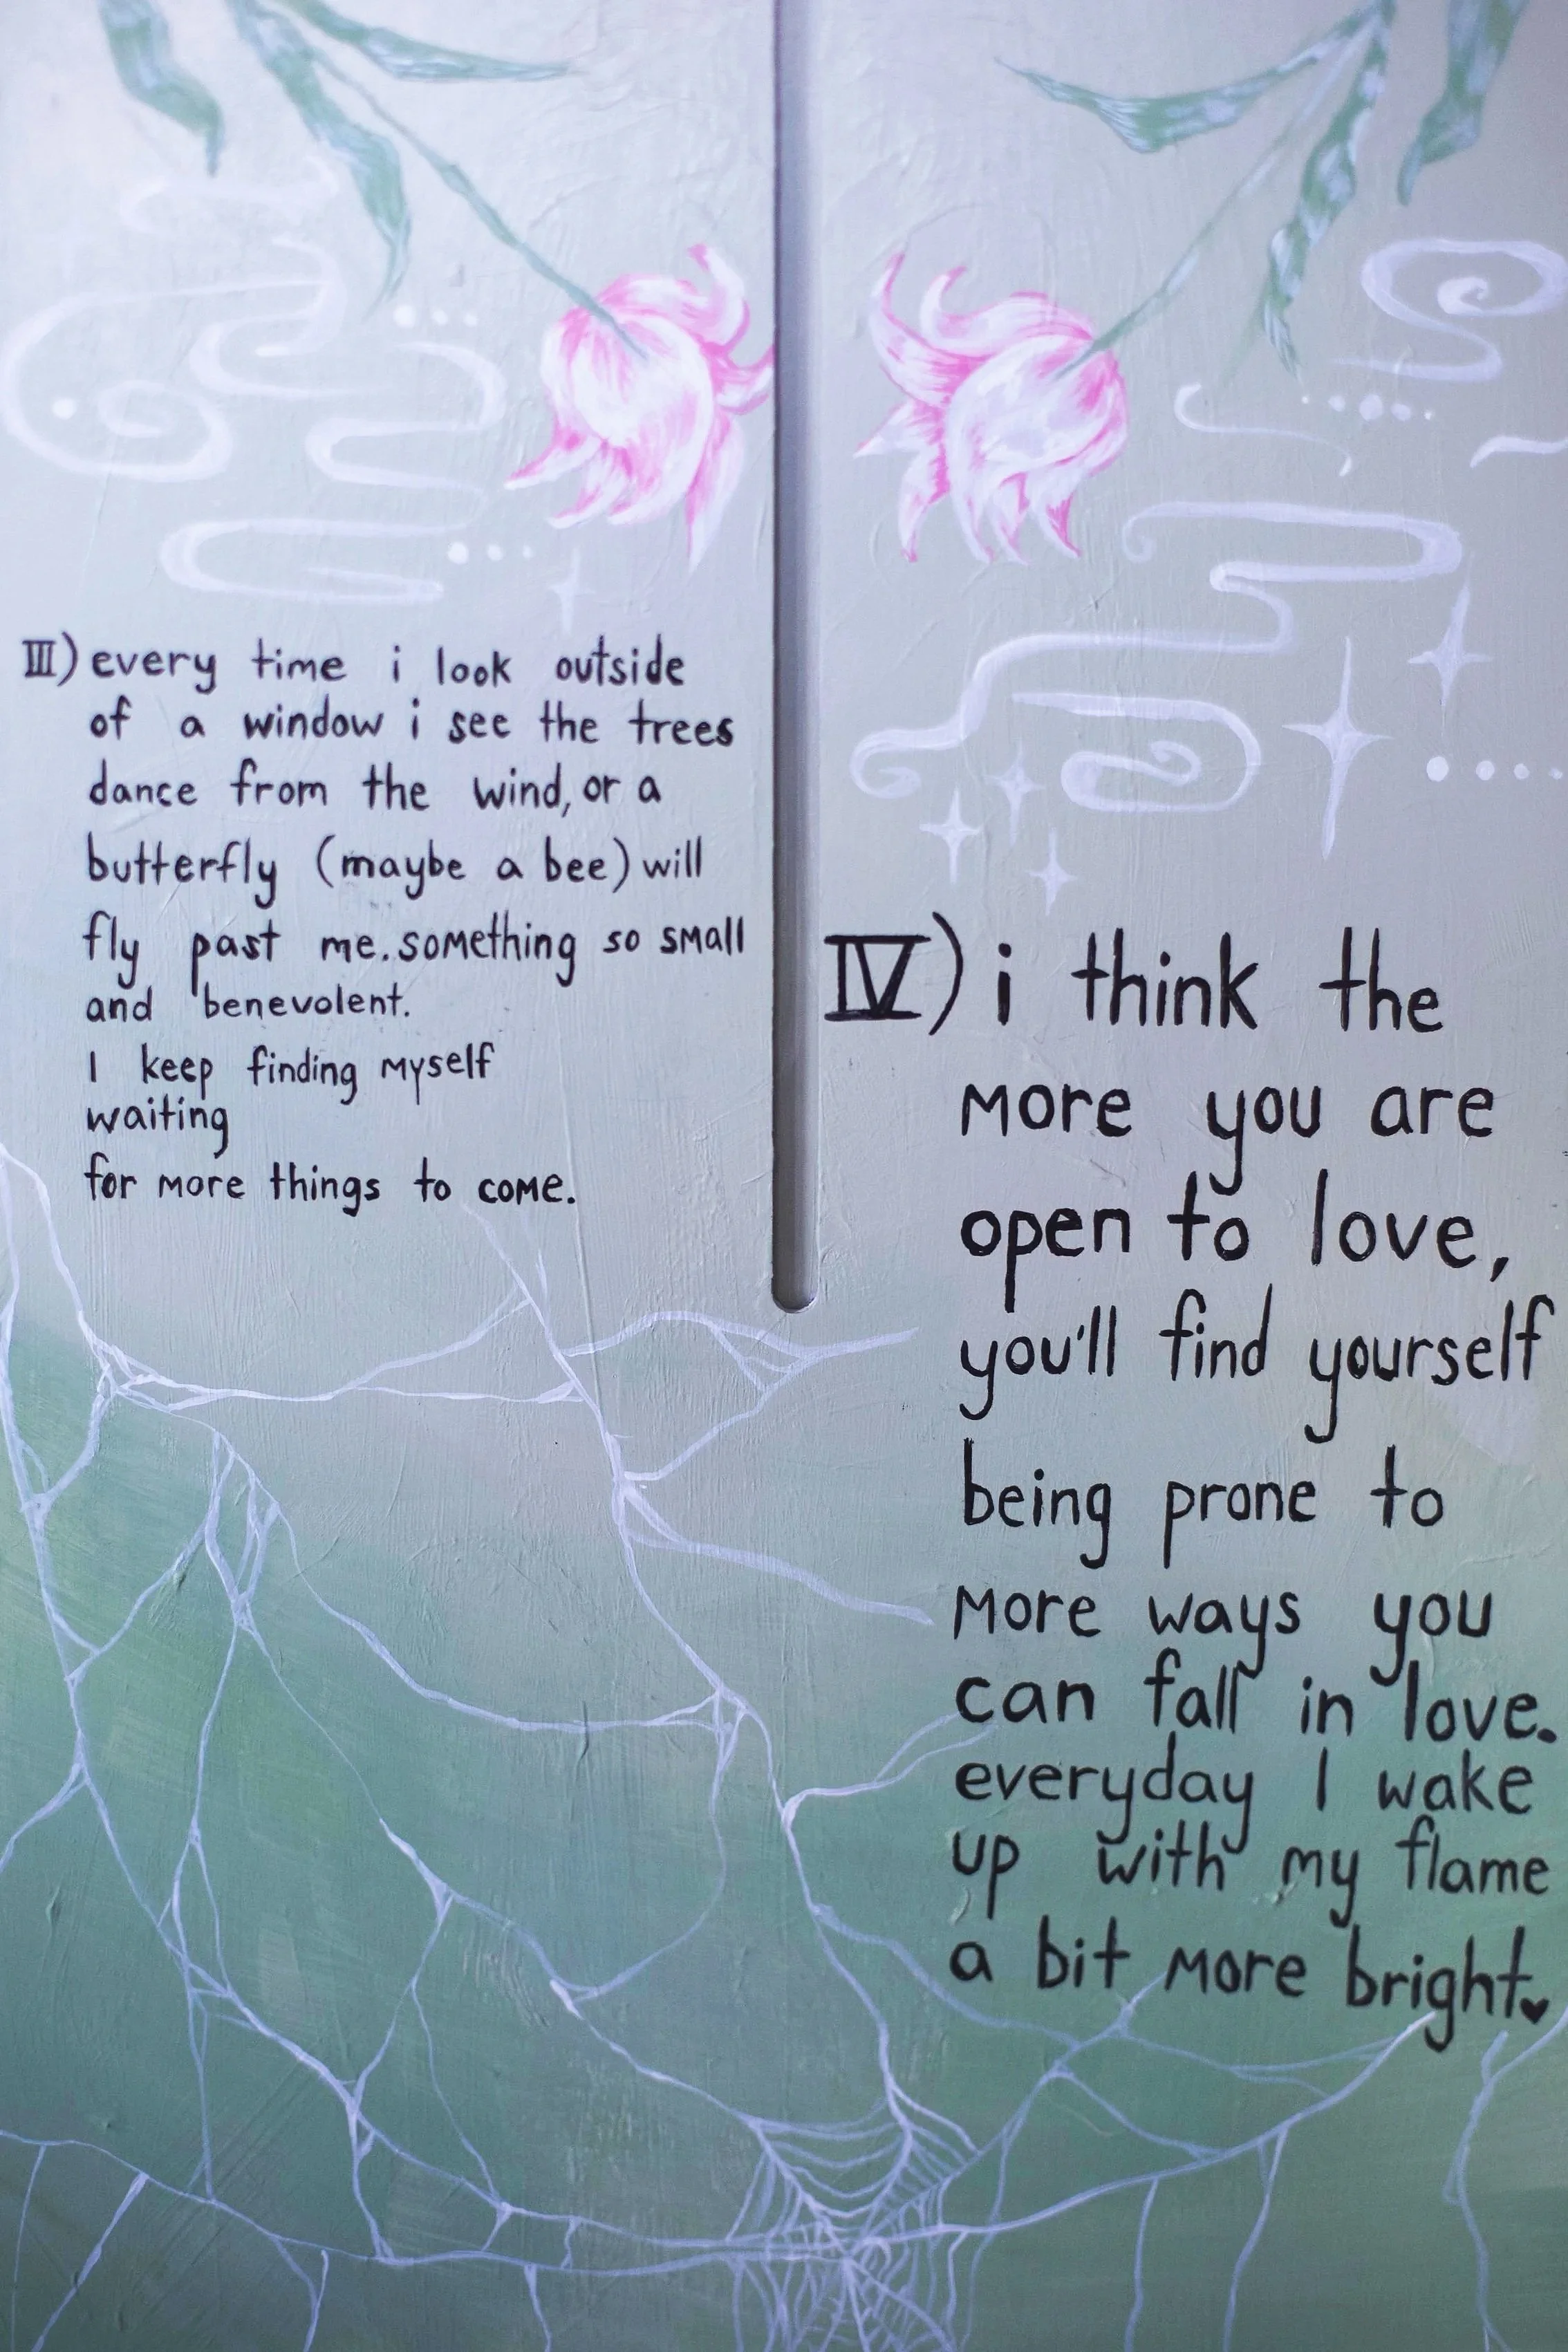 III) every time i look outside
of a window i see the trees
dance from the wind, or a
butterfly (maybe a bee) will
fly past me. something so small
and benevolent.
I keep finding myself
waiting
for more things to come.
IV) i think the
more you are
open to love,
you'll find yourself
being prone to
more ways you
can fall in love.
everyday I wake
up with my flame
a bit more bright.♥